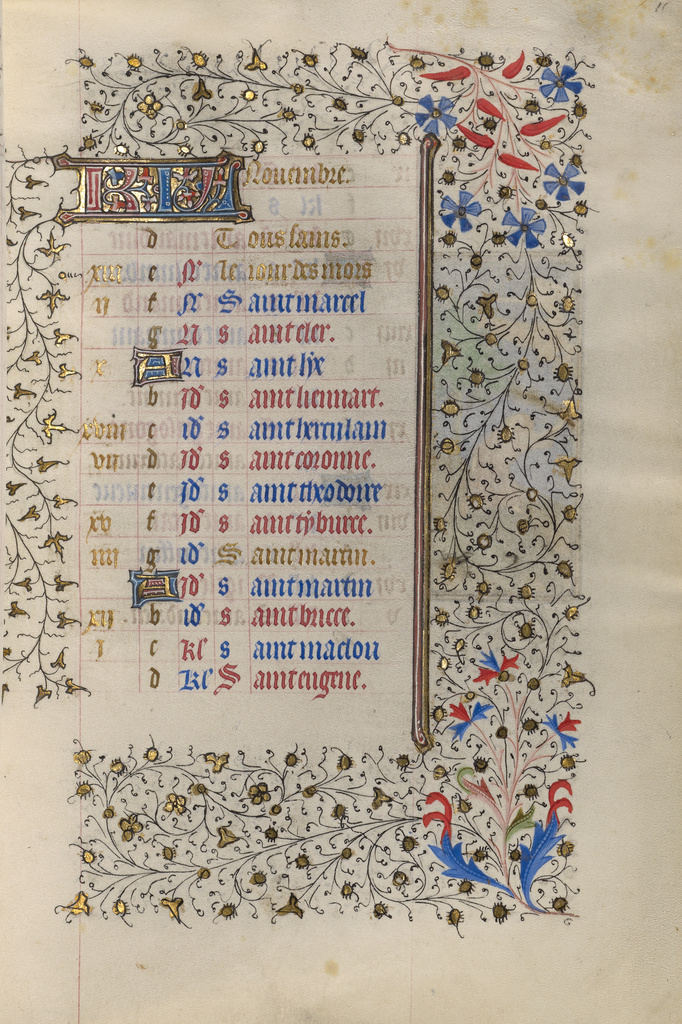 KL Nouembre.
d Tous sains.
xiii e N le iour des mors
ii f N Saint marcel
g N saint cler.
x A N s saint lie
b Id s aint liennart.
xviii c id s aint herculain
vii d Id s aint coronne.
e Id s aint theodoire
xv f Id s aint tyburce.
iiii g id S aint martin.
A Id s aint martin
xii b id s aint bricce.
i c kl s aint maclou
d kl S aint eugene.